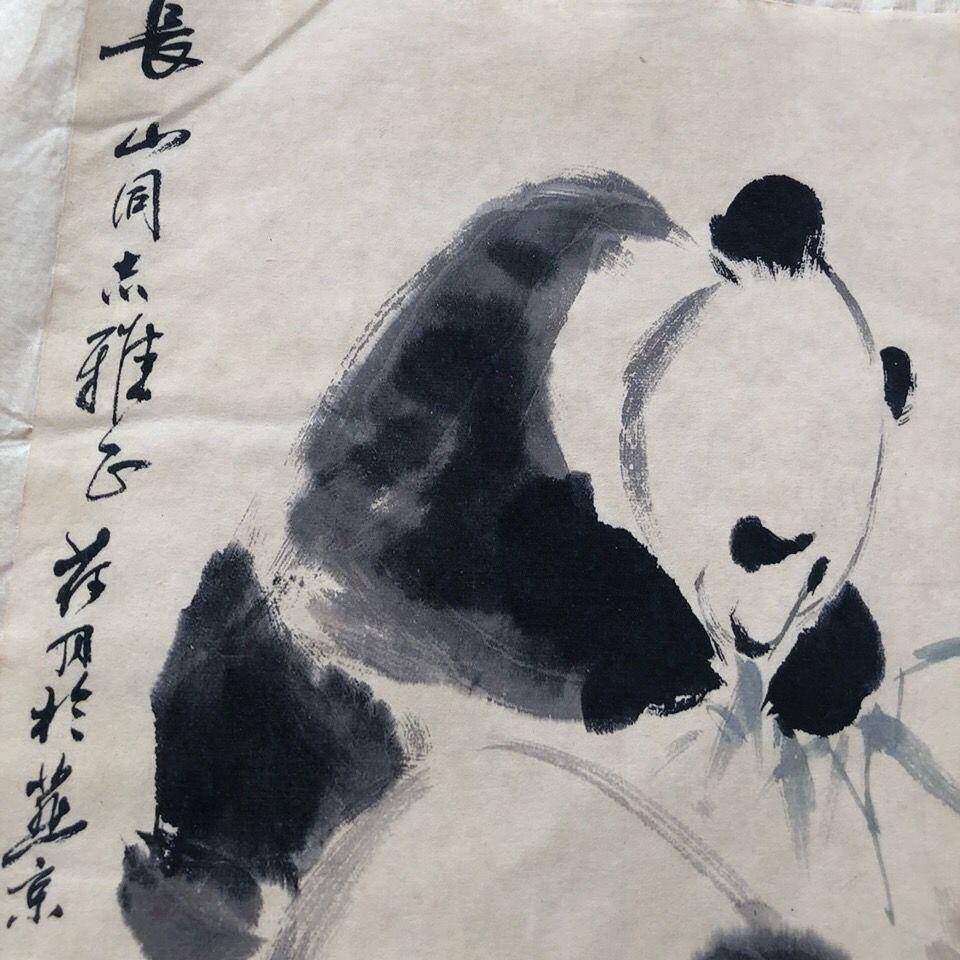 長山同志雅正於燕京